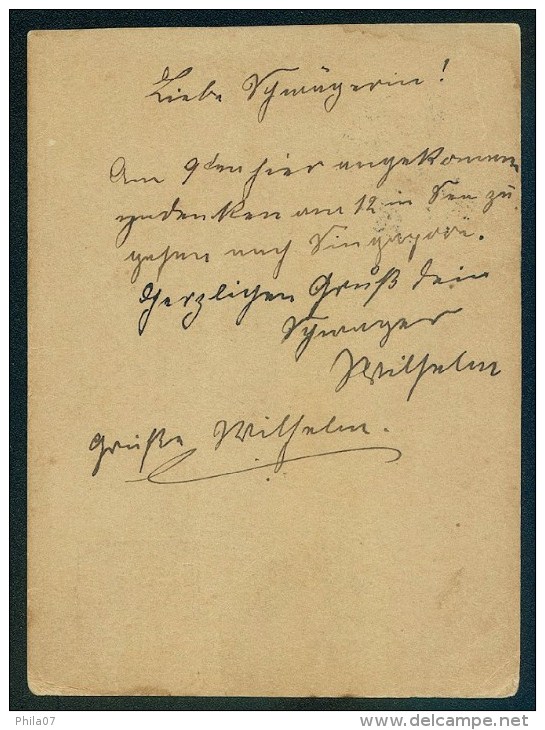 Liebe Schwägerin!
Am 9ten hier angekommen
gedenken am 12 in See zu
gehen nach Singapore.
Herzlichen Gruß dein
Schwager
Wilhelm
Grüße Wilhelm.
Phila07
www.delcampe.net